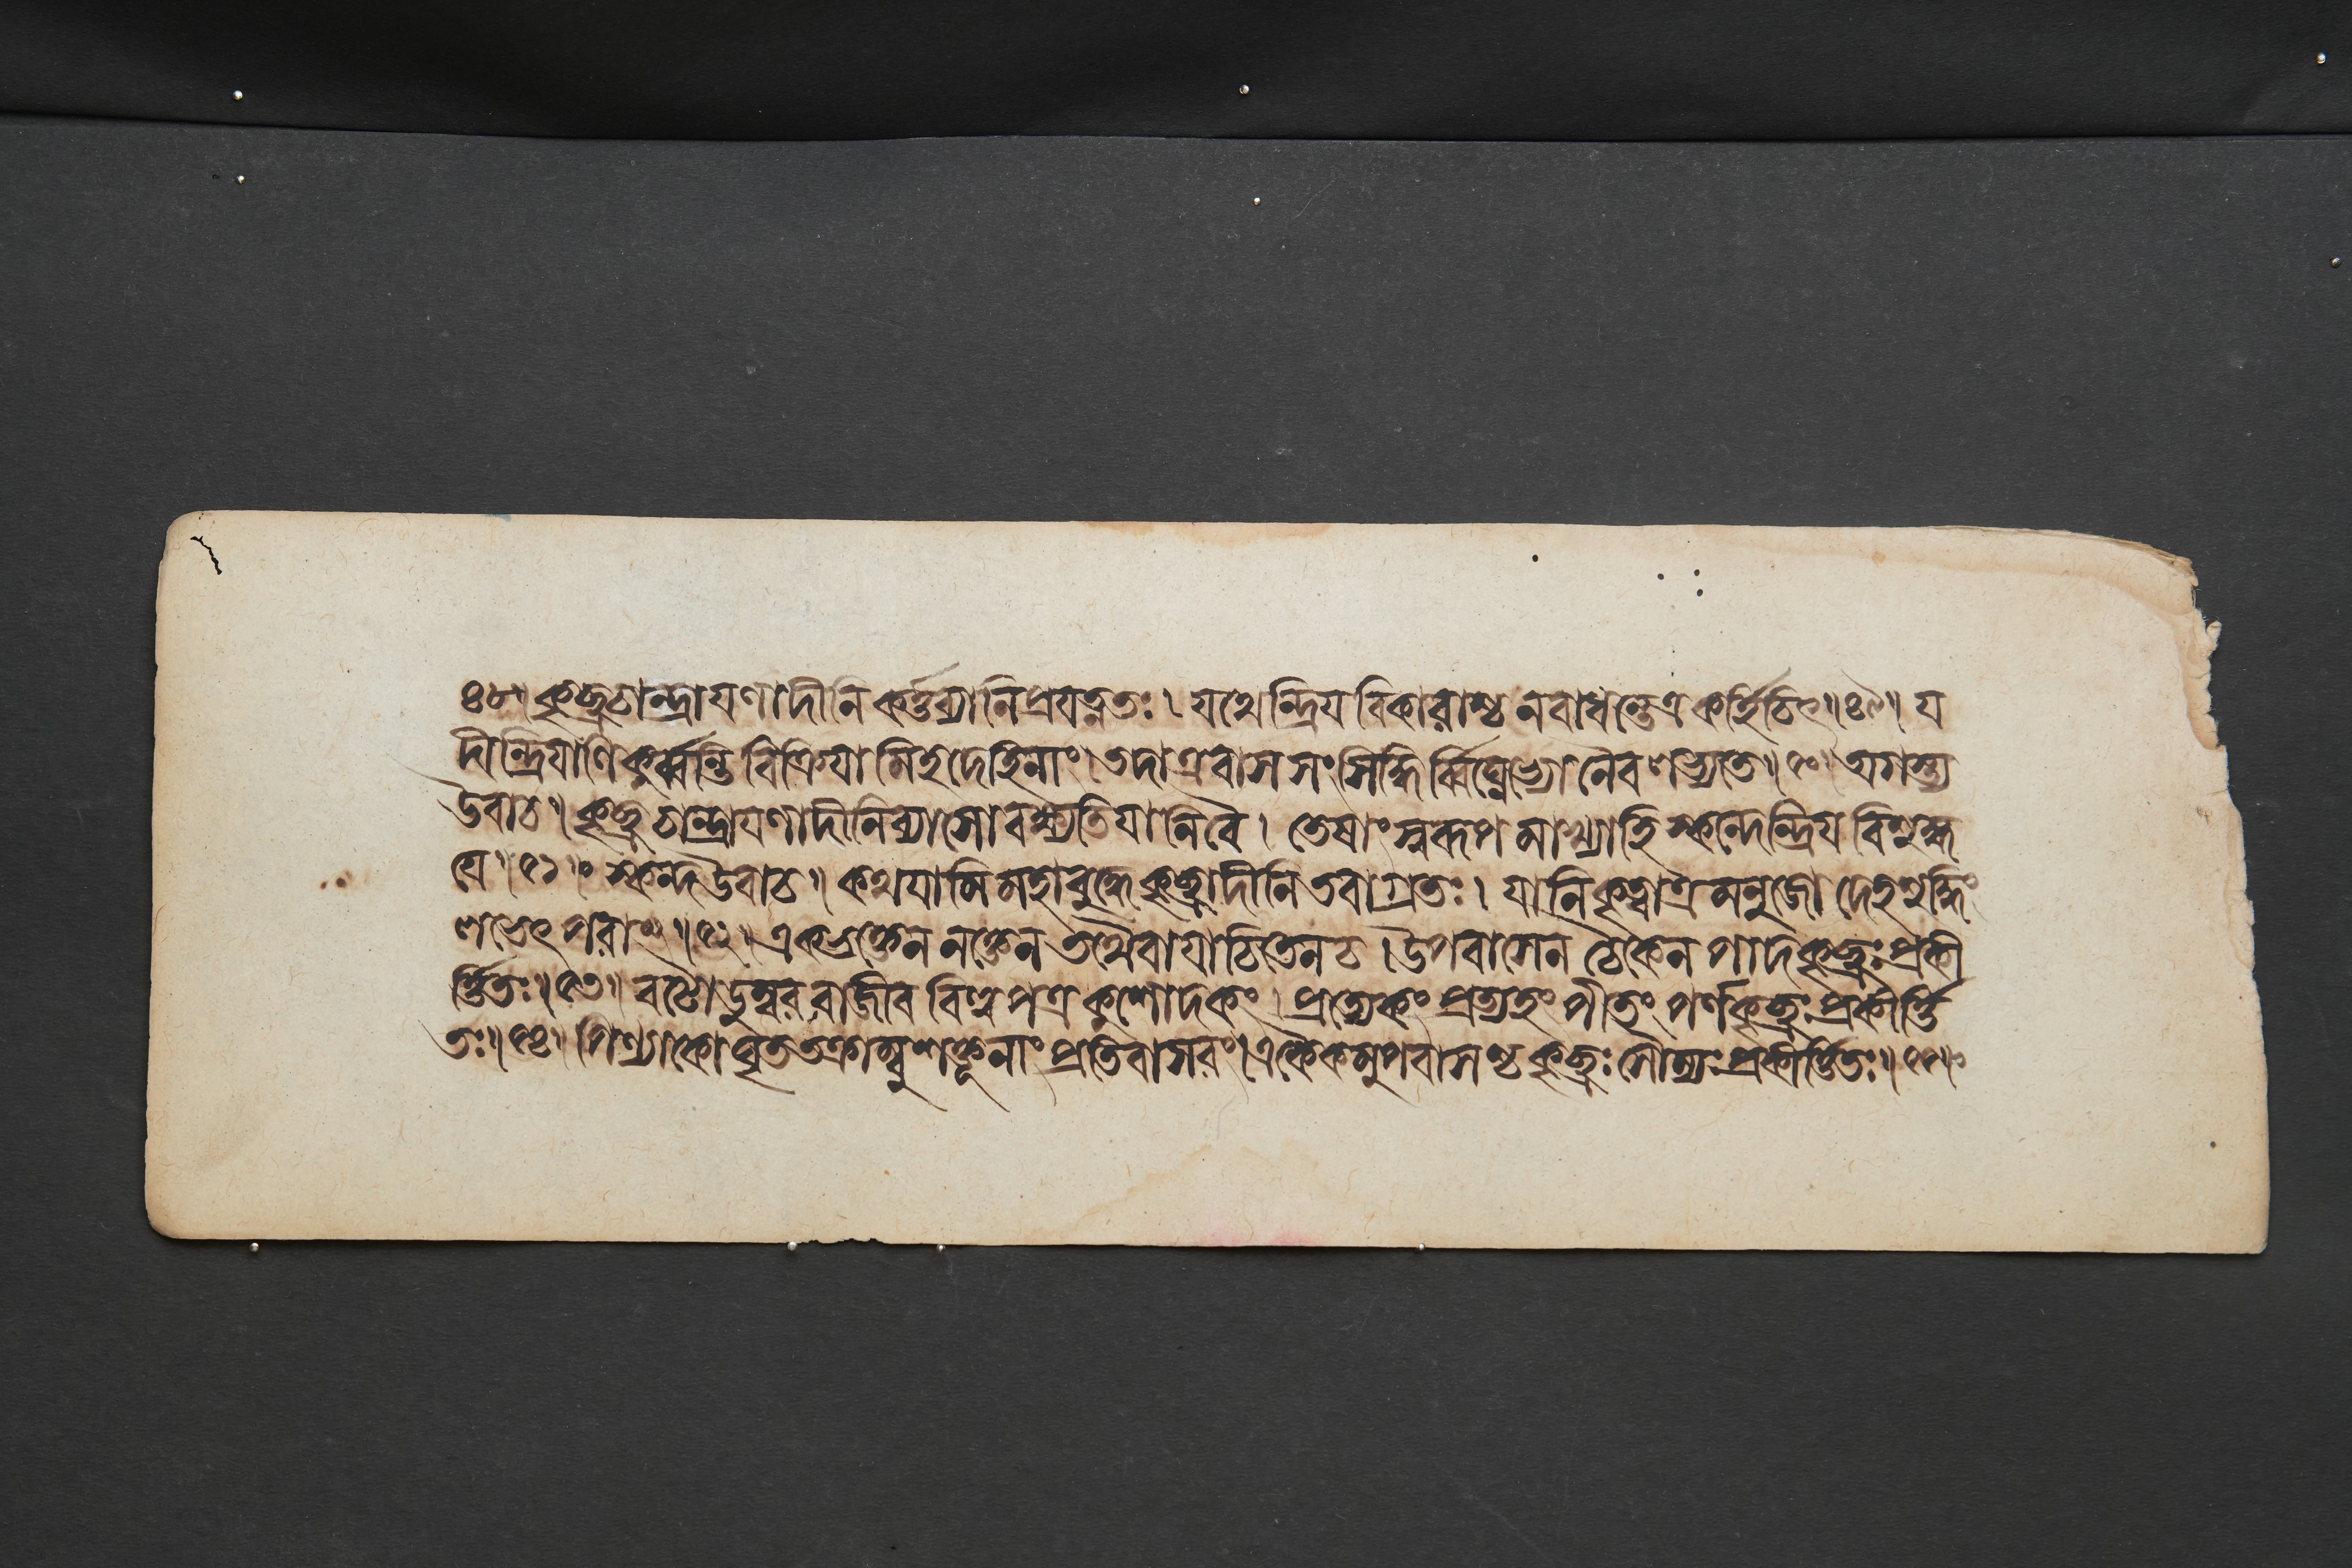 ৪৮৷৷ কৃচ্ছ্রচান্দ্রাযণাদীনি কর্ত্তব্যানি প্রযত্নতঃ ৷ যথেন্দ্রিয বিকারাশ্চ নবাধন্তেত্র কর্হিচিৎ৷৷৪৯৷৷ য
দীন্দ্রিযাণি কুর্ব্বন্তি বিক্রিযামিহদেহিনাং৷ তদাত্রবাস সংসিদ্ধি র্বিঘ্নেভ্যো নৈব লভ্যতে৷৷৫০৷৷ অগস্ত্য
উবাচ৷৷ কৃচ্ছ্র চান্দ্রাযণাদীনিব্যাসো বক্ষ্যতিযানিবৈ ৷ তেষাং স্বরূপ মাখ্যাহি স্কন্দেন্দ্রিয বিশুদ্ধ
যে৷৷৫১৷৷ স্কন্দউবাচ৷৷ কথযামি মহাবুদ্ধে কৃচ্ছ্রাদীনি তবাগ্রতঃ ৷ যানি কৃত্বাত্র মনুজো দেহশুদ্ধিং
লভেৎ পরাং৷৷৫২৷৷ একভক্তেন নক্তেন তথৈবাযাচিতেনচ ৷ উপবাসেন চৈকেন পাদকৃচ্ছ্রঃ প্রকী
র্ত্তিতঃ৷৷৫৩৷৷ বটোডুম্বর রাজীব বিল্ব পত্র কুশোদকং ৷ প্রত্যেকং প্রত্যহং পীতং পর্ণকৃচ্ছ্রঃ প্রকীর্ত্তি
তঃ৷৷৫৪৷৷ পিণ্যাকো ঘৃত তক্রাম্বু শক্তূনাং প্রতিবাসরং৷ একৈকমুপবাসশ্চ কৃচ্ছ্রঃ সৌম্যঃ প্রকীর্ত্তিতঃ৷৷৫৫৷৷